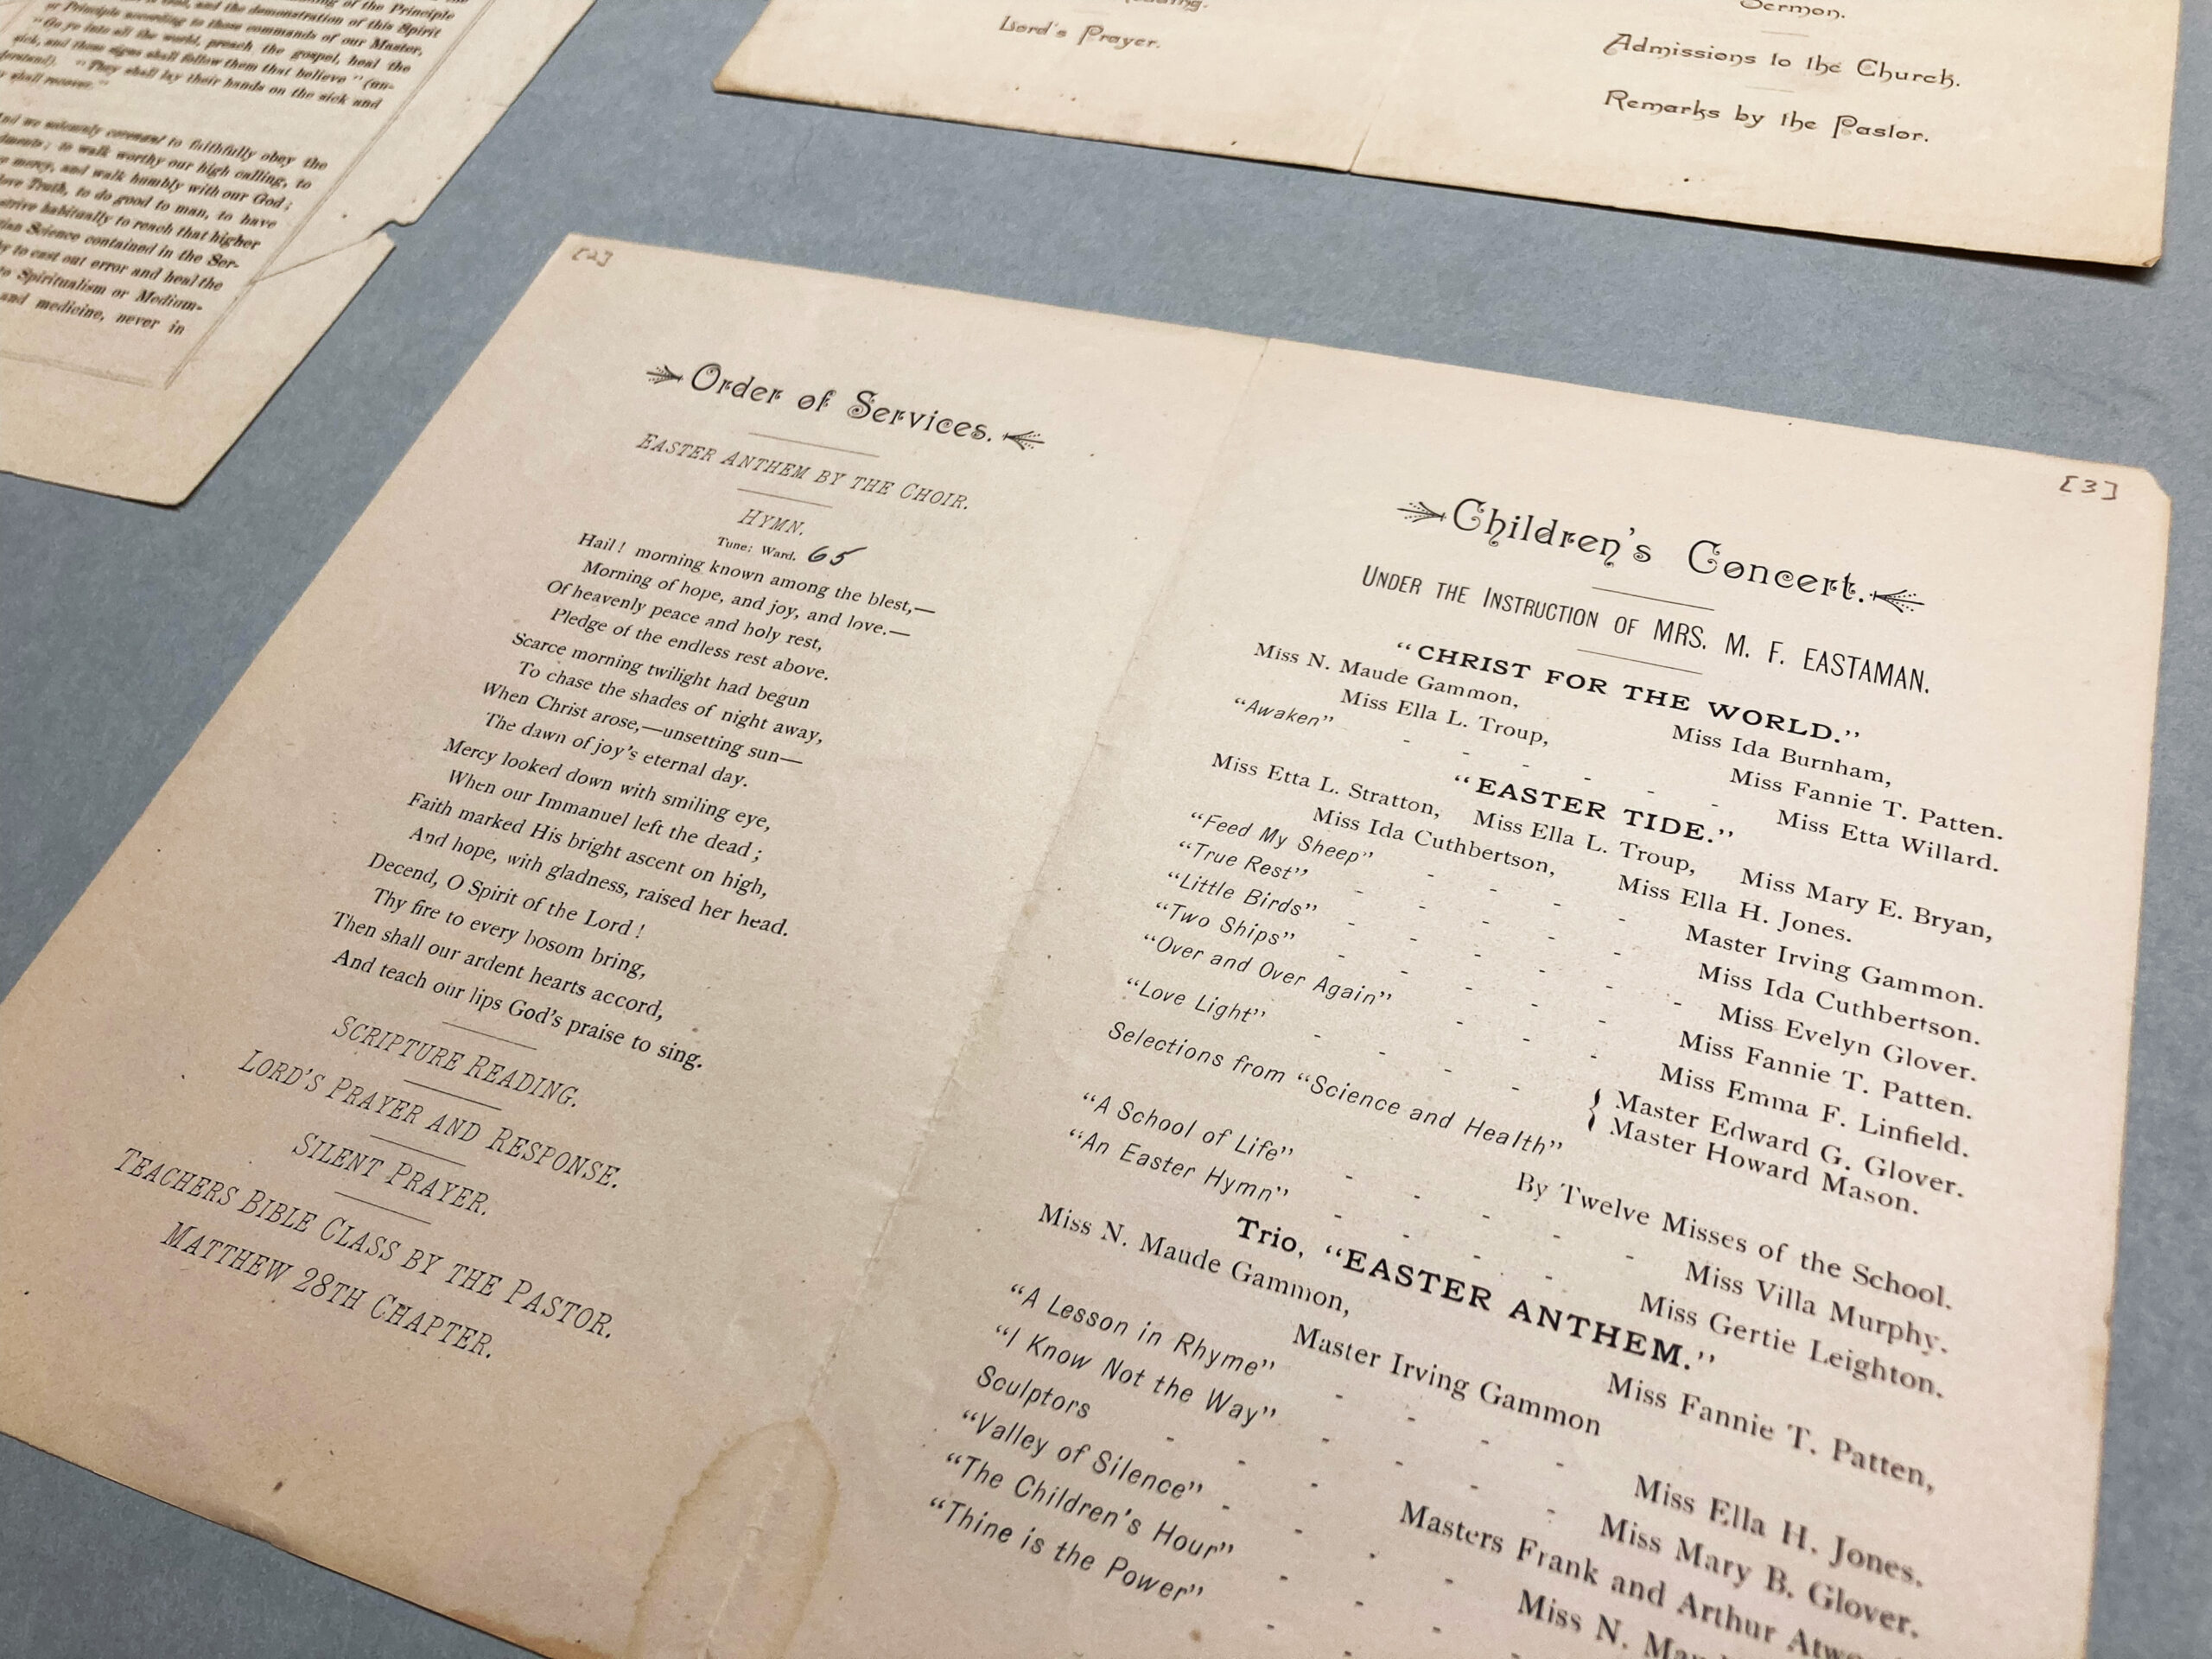 of the Principle
and the demonstration of this Spirit
or Principle according to those commands of our Master,
"Go ye into all the world, preach the gospel, heal the
sick, and these signs shall follow them that believe" (un-
"They shall lay their hands on the sick and
shall recover."
And we solemnly covenant to faithfully obey the
to walk worthy our high calling, to
mercy, and walk humbly with our God;
love Truth, to do good to man, to have
strive habitually to reach that higher
Science contained in the Ser-
to cast out error and heal the
to Spiritualism or Medium-
and medicine, never in
Lord's Prayer.
Sermon.
Admissions to the Church.
Remarks by the Pastor.
[2]
Order of Services.
EASTER ANTHEM BY THE CHOIR.
HYMN.
Tune: Ward. 65
Hail! morning known among the blest,—
Morning of hope, and joy, and love.—
Of heavenly peace and holy rest,
Pledge of the endless rest above.
Scarce morning twilight had begun
To chase the shades of night away,
When Christ arose,—unsetting sun—
The dawn of joy's eternal day.
Mercy looked down with smiling eye,
When our Immanuel left the dead;
Faith marked His bright ascent on high,
And hope, with gladness, raised her head.
Decend, O Spirit of the Lord!
Thy fire to every bosom bring,
Then shall our ardent hearts accord,
And teach our lips God's praise to sing.
SCRIPTURE READING.
LORD'S PRAYER AND RESPONSE.
SILENT PRAYER.
TEACHERS BIBLE CLASS BY THE PASTOR.
MATTHEW 28TH CHAPTER.
[3]
Children's Concert.
UNDER THE INSTRUCTION OF MRS. M. F. EASTAMAN.
"CHRIST FOR THE WORLD."
Miss N. Maude Gammon, Miss Ida Burnham,
Miss Ella L. Troup, Miss Fannie T. Patten.
"Awaken" - - - - - - Miss Etta Willard.
"EASTER TIDE."
Miss Etta L. Stratton, Miss Ella L. Troup, Miss Mary E. Bryan,
Miss Ida Cuthbertson, Miss Ella H. Jones.
"Feed My Sheep" - - - - Master Irving Gammon.
"True Rest" - - - - - Miss Ida Cuthbertson.
"Little Birds" - - - - - Miss Evelyn Glover.
"Two Ships" - - - - - Miss Fannie T. Patten.
"Over and Over Again" - - - Miss Emma F. Linfield.
"Love Light" - - - - { Master Edward G. Glover.
Master Howard Mason.
Selections from "Science and Health" By Twelve Misses of the School.
"A School of Life" - - - - - Miss Villa Murphy.
"An Easter Hymn" - - - - Miss Gertie Leighton.
Trio, "EASTER ANTHEM."
Miss N. Maude Gammon, Master Irving Gammon Miss Fannie T. Patten,
"A Lesson in Rhyme" - - - - Miss Ella H. Jones.
"I Know Not the Way" - - - - Miss Mary B. Glover.
Sculptors - - - - Masters Frank and Arthur
"Valley of Silence" - - - - Miss N.
"The Children's Hour"
"Thine is the Power"